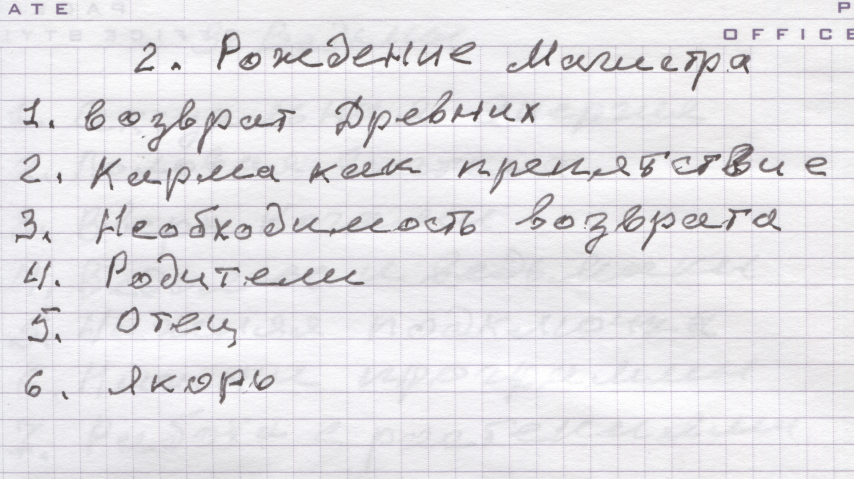 ATE P
OFFICE
2. Рождение Магистра
1. возврат Древних
2. Карма как препятствие
3. Необходимость возврата
4. Родители
5. Отец
6. якорь